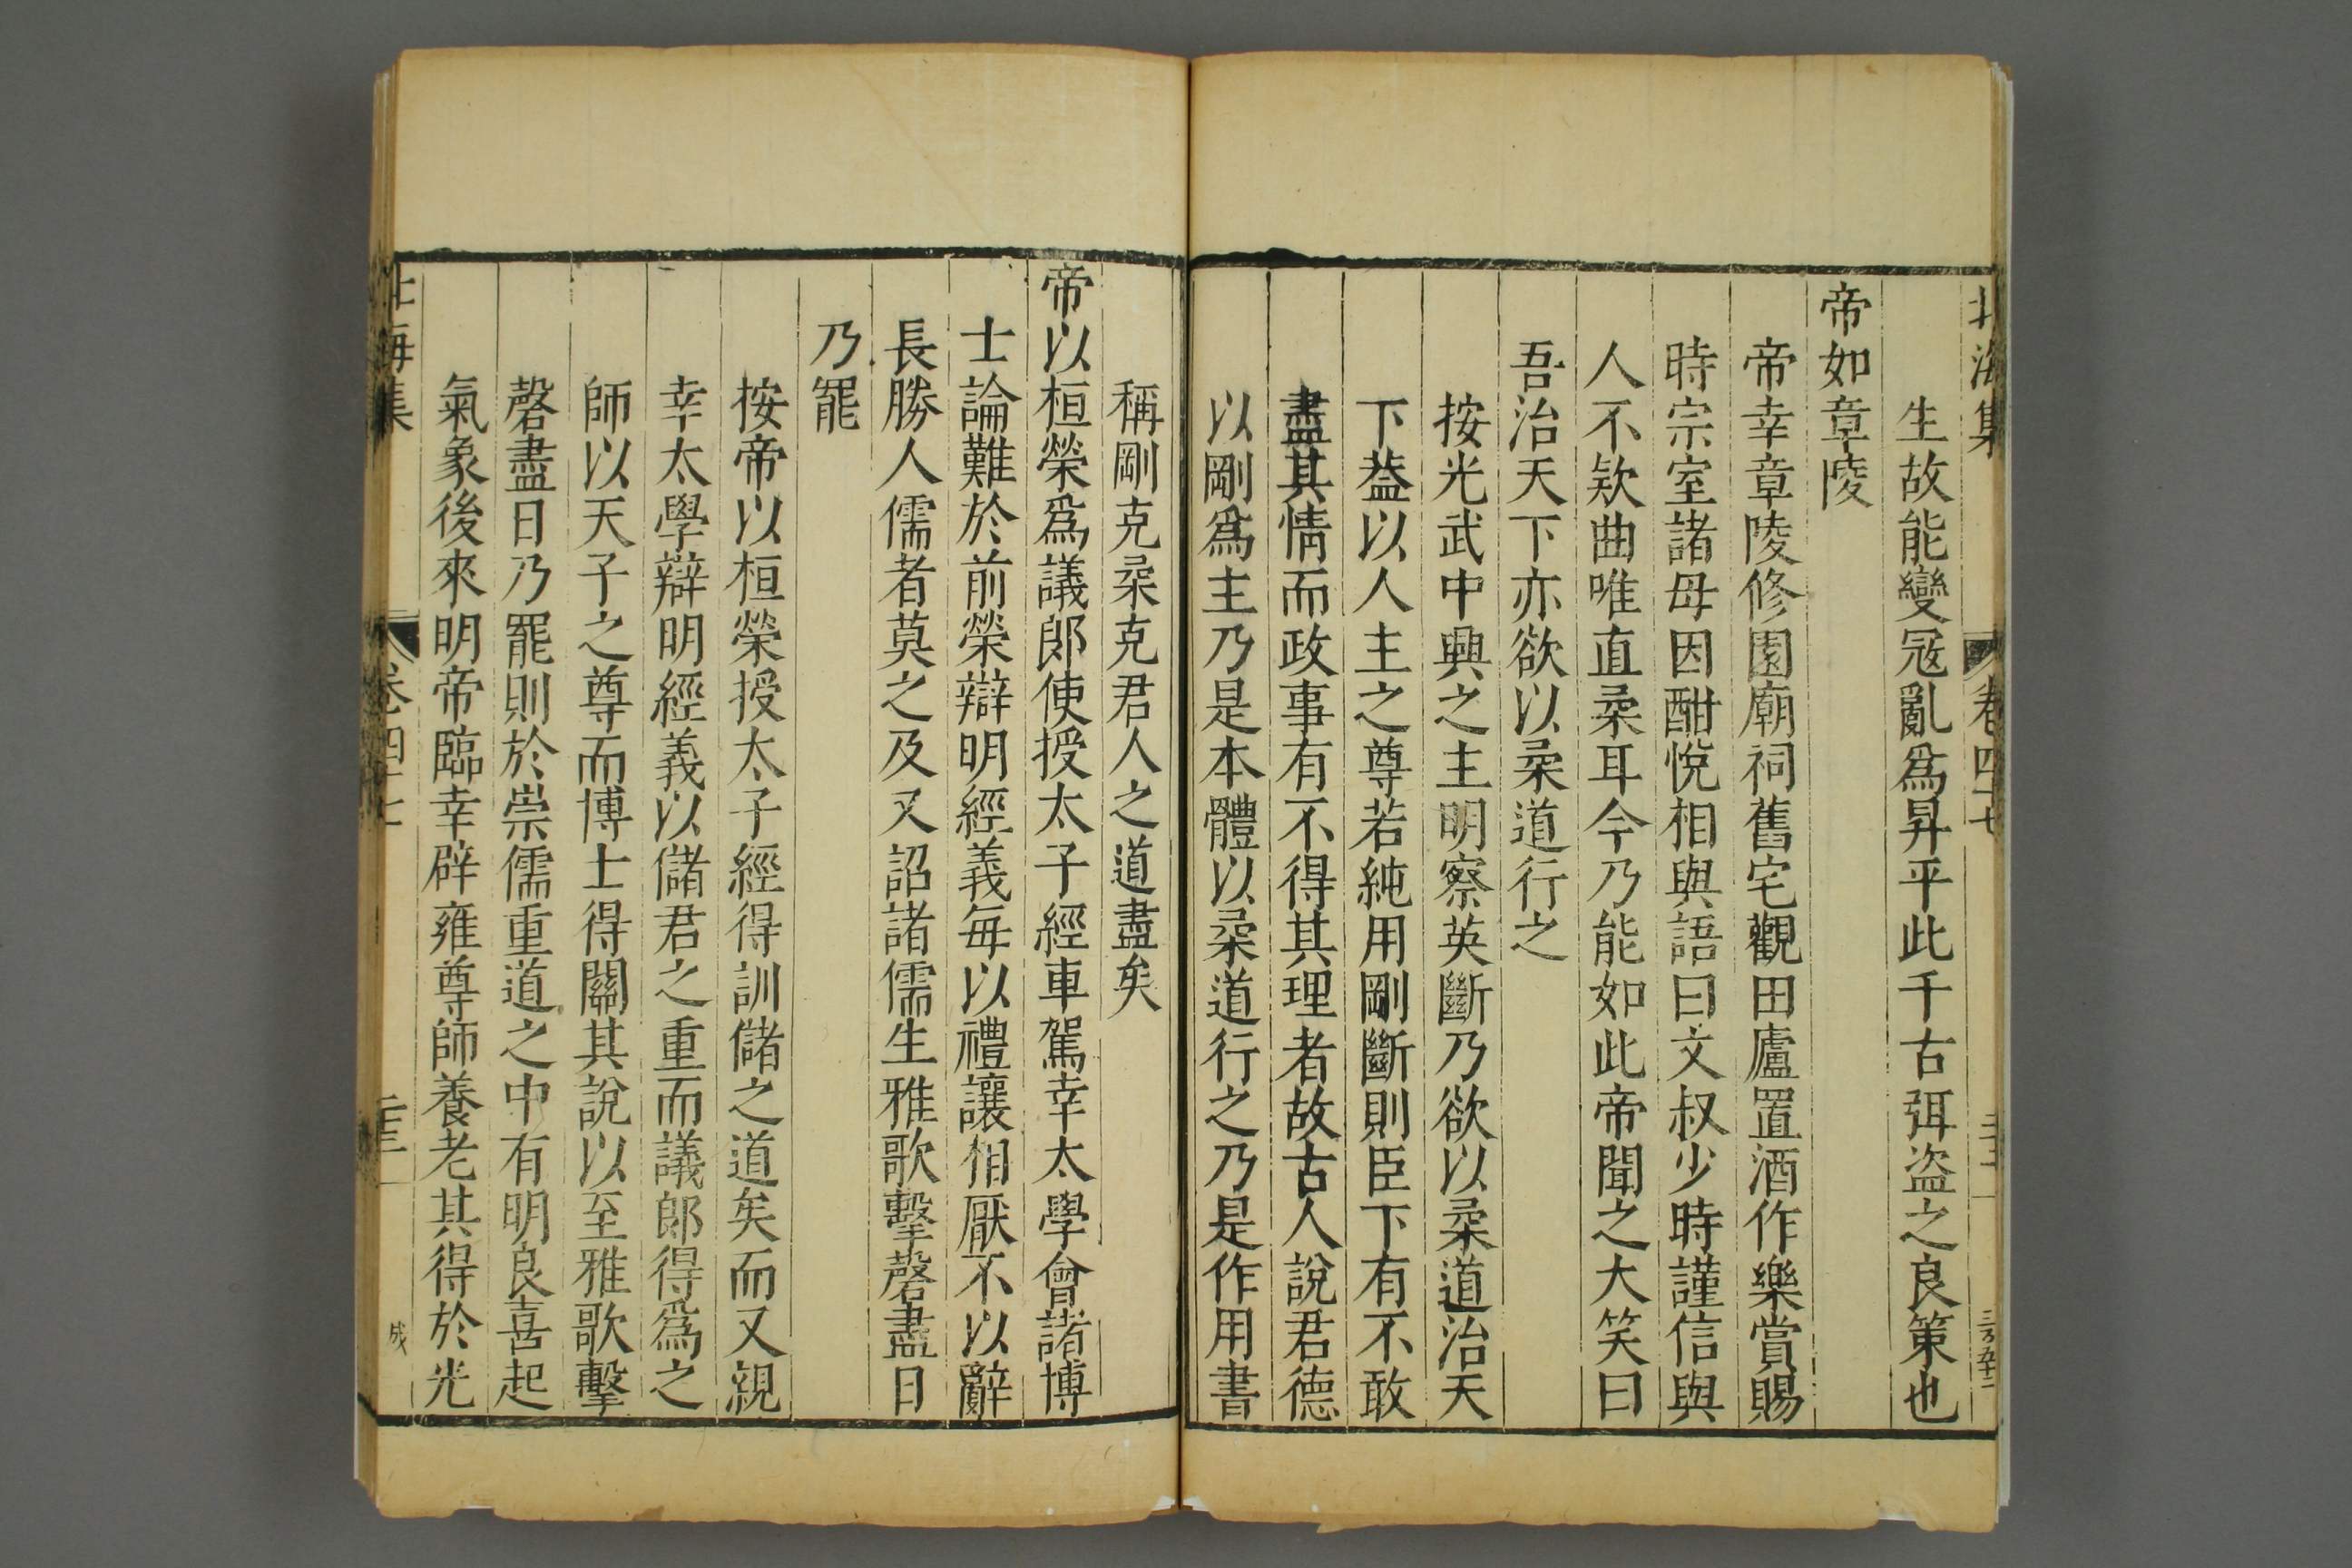 北海集
卷四十七
生故能變冦亂爲昇平此千古弭盗之良策也
帝如章陵
帝幸章陵修園廟祠舊宅觀田廬置酒作樂賞賜
時宗室諸母因酣悅相與語曰文叔少時謹信與
人不欵曲唯直柔耳今乃能如此帝聞之大笑曰
吾治天下亦欲以柔道行之
按光武中興之主明察英斷乃欲以柔道治天
下葢以人主之尊若純用剛斷則臣下有不敢
盡其情而政事有不得其理者故古人說君德
以剛爲主乃是本體以柔道行之乃是作用書
稱剛克柔克君人之道盡矣
帝以桓榮爲議郎使授太子經車駕幸太學會諸博
士論難於前榮辯明經義每以禮讓相厭不以辭
長勝人儒者莫之及又詔諸儒生雅歌擊磬盡日
乃罷
按帝以桓榮授太子經得訓儲之道矣而又親
幸太學辯明經義以儲君之重而議郎得爲之
師以天子之尊而博士得關其說以至雅歌擊
磬盡日乃罷則於崇儒重道之中有明良喜起
氣象後來明帝臨幸辟雍尊師養老其得於光
北海集
卷四十七
成